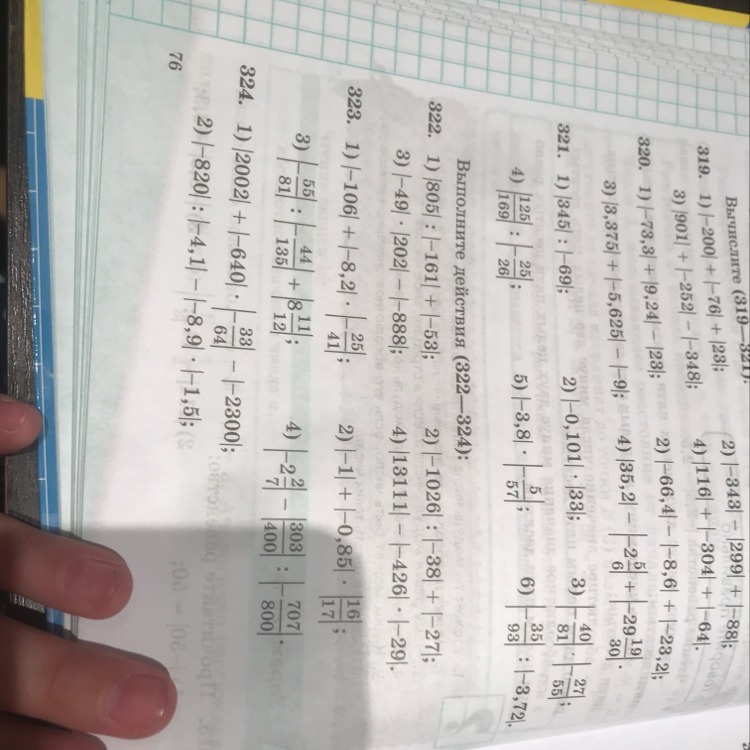 Вычислите (319—321):
319. 1) |−200| + |−76| + |23|; 2) |−343| − |299| + |−88|;
3) |901| + |−252| − |−348|; 4) |116| + |−304| + |−64|.
320. 1) |−73,3| + |9,24| − |23|; 2) |−66,4| − |−8,6| + |−23,2|;
3) |3,375| + |−5,625| − |−9|; 4) |35,2| − |−2 5/6| + |−29 19/30|.
321. 1) |345| : |−69|; 2) |−0,101| · |33|; 3) |−40/81| · |−27/55|;
4) |125/169| : |−25/26|; 5) |−3,8| · |−5/57|; 6) |−35/93| : |−3,72|.
Выполните действия (322—324):
322. 1) |805| : |−161| + |−53|; 2) |−1026| : |−38| + |−27|;
3) |−49| · |202| − |−888|; 4) |13111| − |−426| · |−29|.
323. 1) |−106| + |−8,2| · |−25/41|; 2) |−1| + |−0,85| · |16/17|;
3) |−55/81| : |−44/135| + |8 11/12|; 4) |−2 2/7| − |303/400| : |−707/800|.
324. 1) |2002| + |−640| · |−33/64| − |−2300|;
2) |−820| : |−4,1| − |−8,9| · |−1,5|;
76